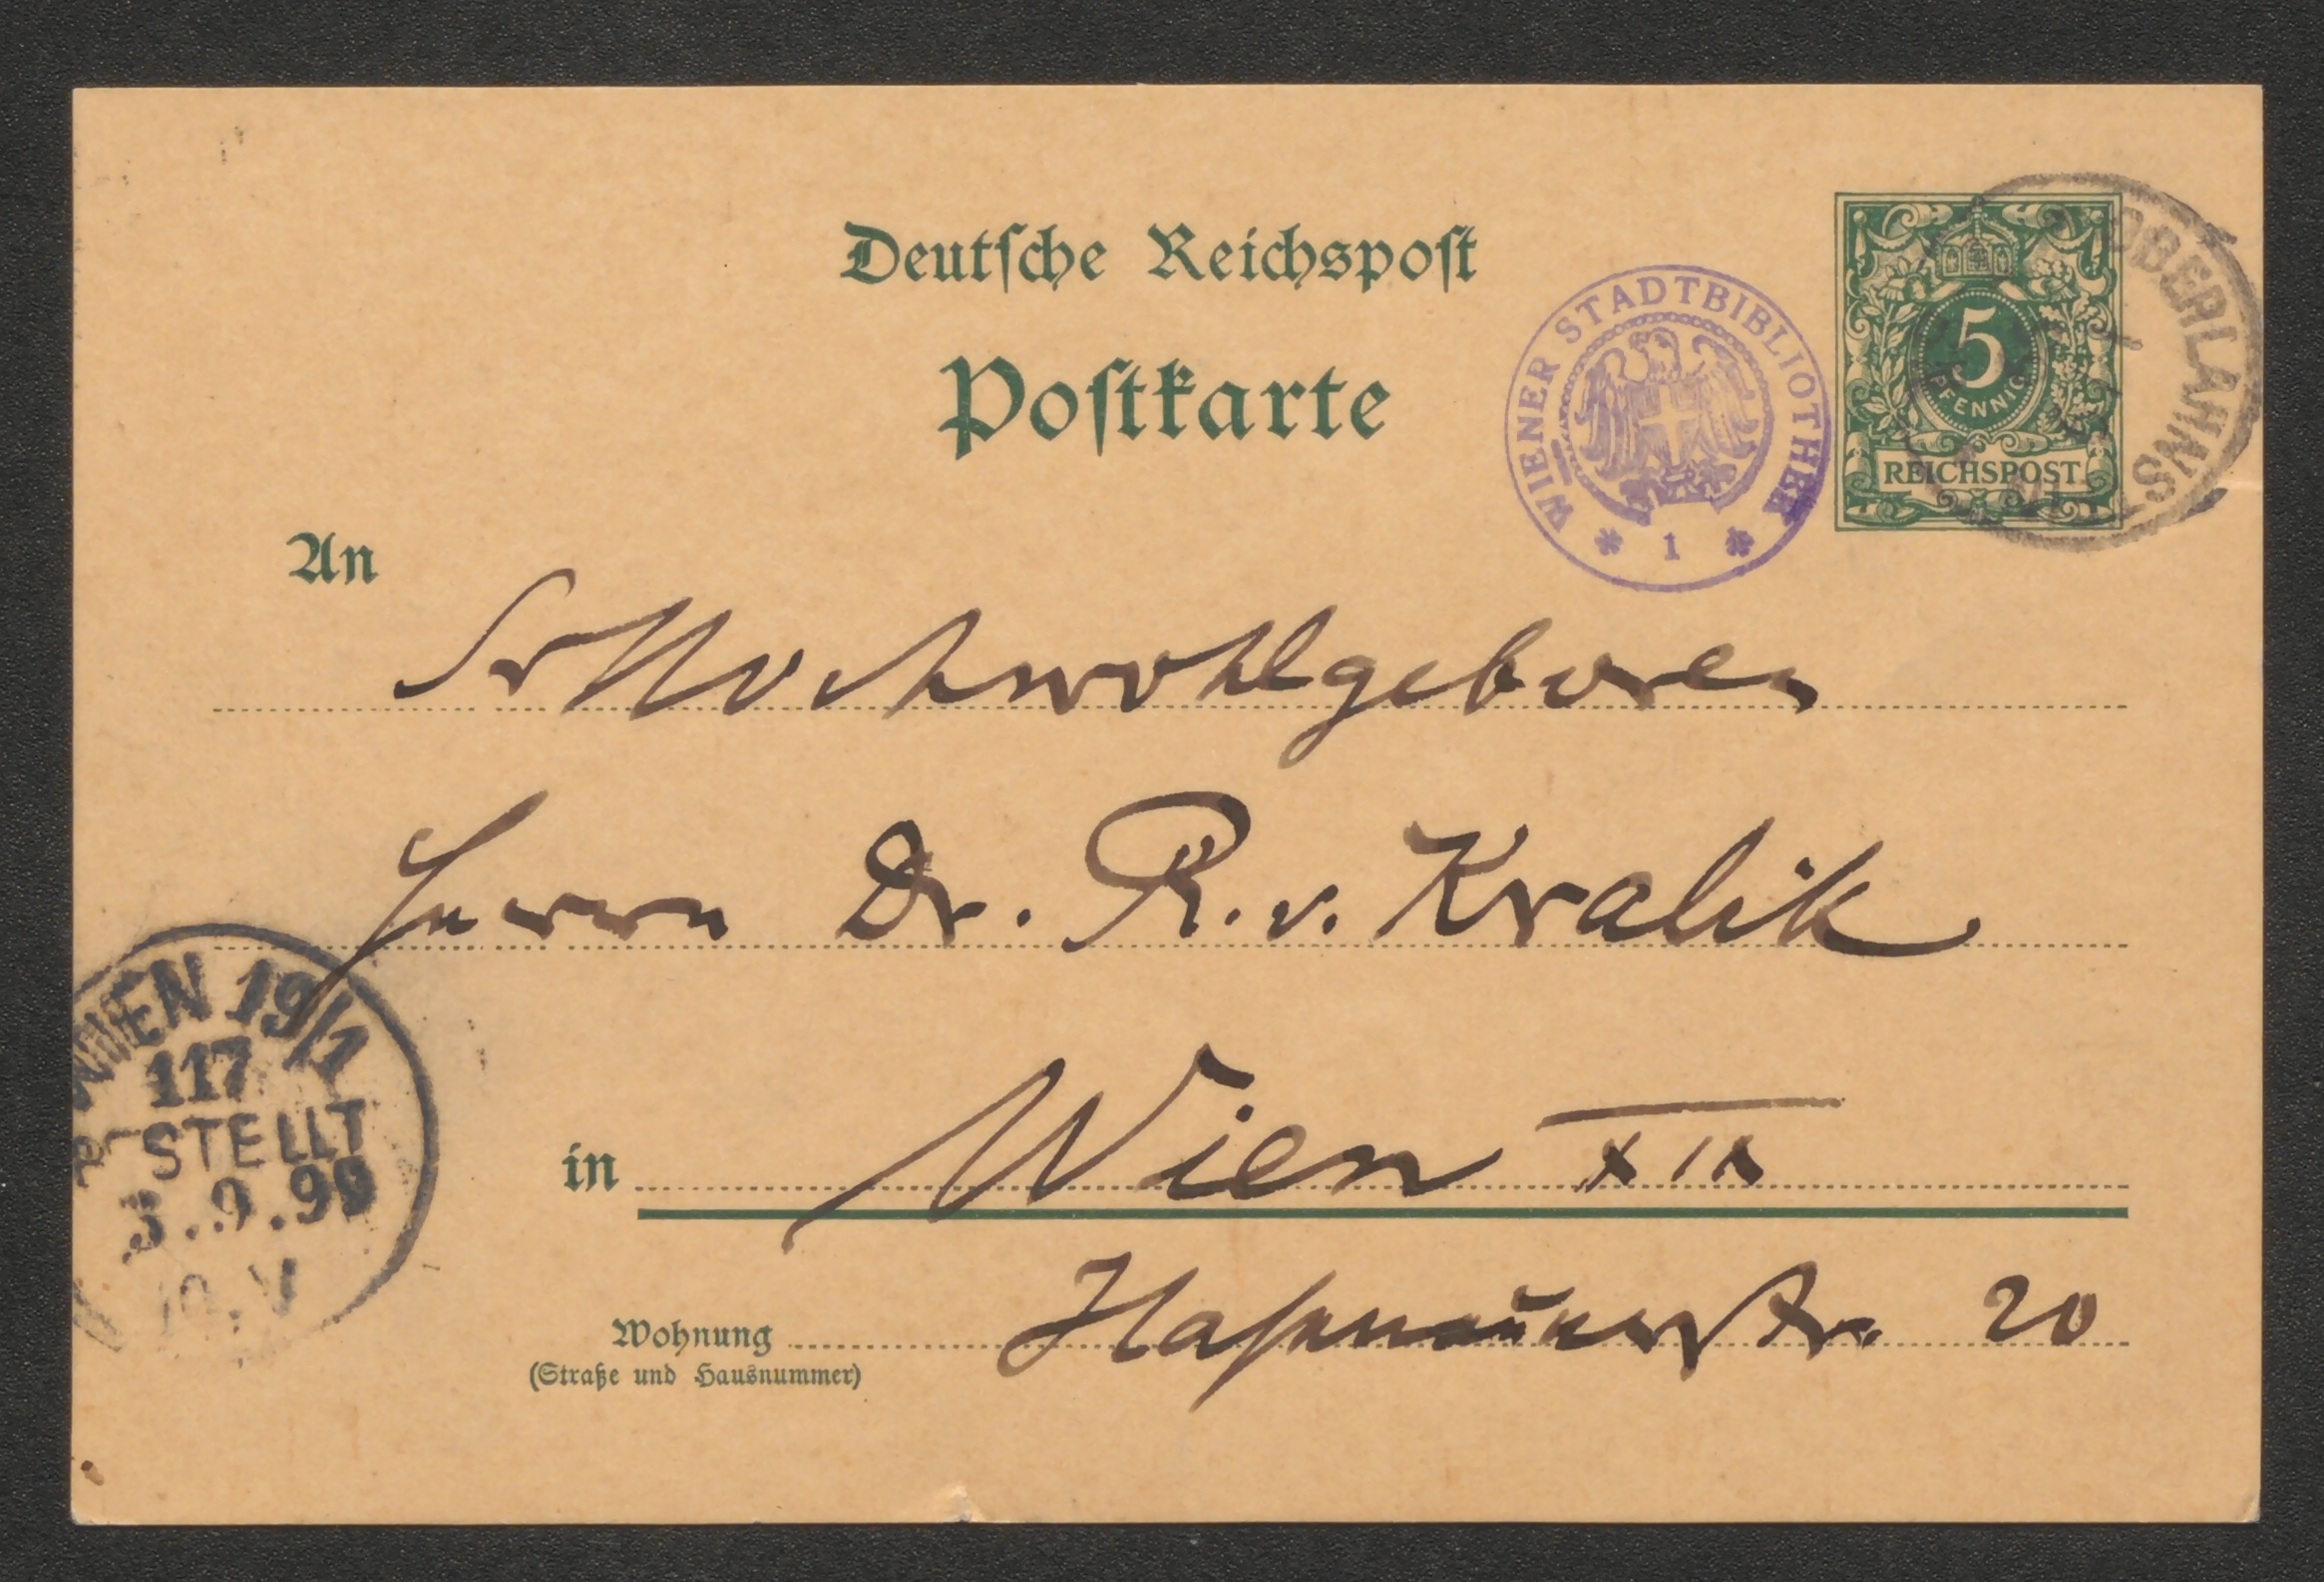 Deutsche Reichspost
Postkarte
WIENER STADTBIBLIOTHEK
* 1 *
5
PFENNIG
REICHSPOST
OBERLAHNS
An
Sr Hochwohlgeboren
Herrn Dr. R. v. Kralik
in Wien XIX
Wohnung Hasenauerstr. 20
(Straße und Hausnummer)
WIEN 19/1
117
BESTELLT
3.9.99
10.V